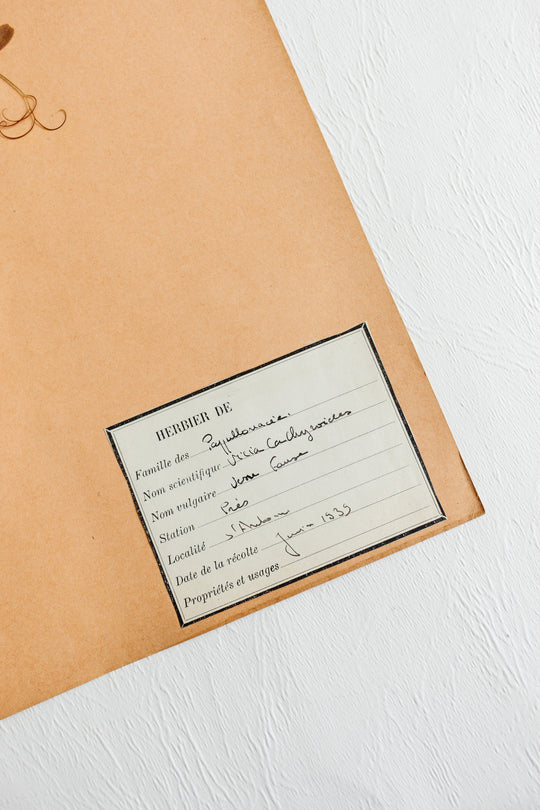 HERBIER DE
Famille des Papillonacie.
Nom scientifique Vicia Lathyroides
Nom vulgaire fausse
Station Près
Localité
Date de la récolte Juin 1939
Propriétés et usages